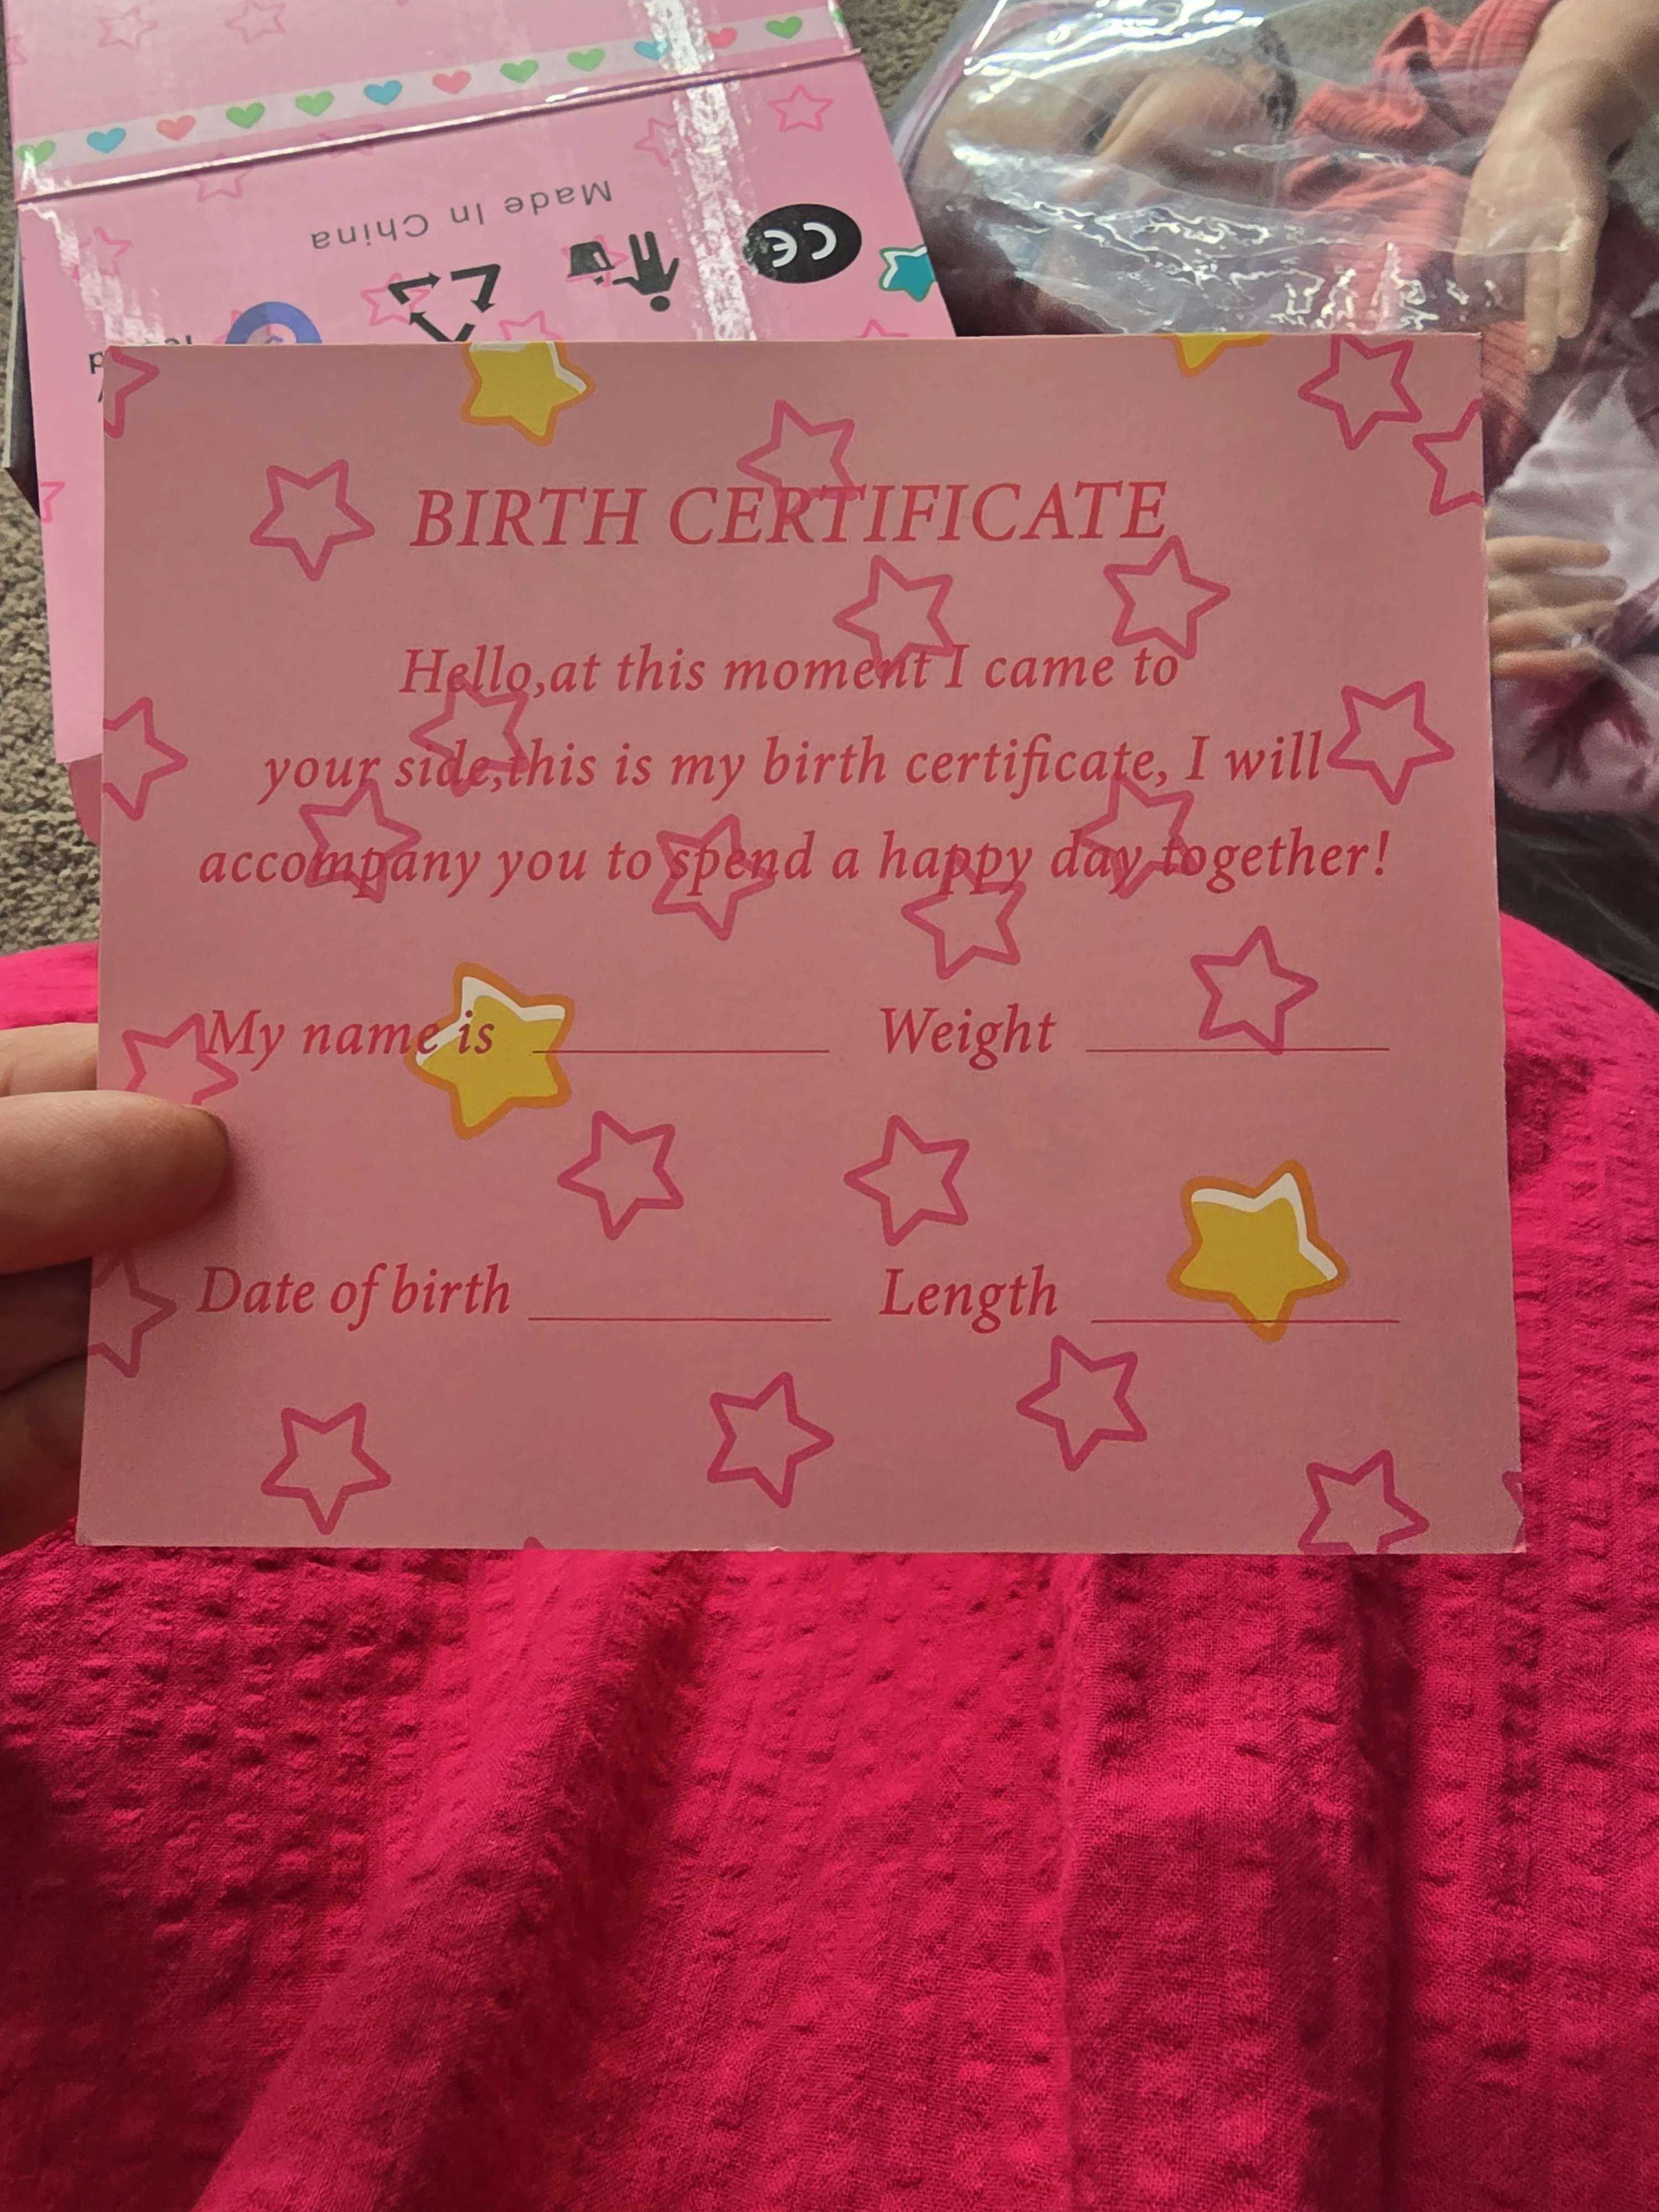 Made In China
CE
BIRTH CERTIFICATE
Hello,at this moment I came to
your side,this is my birth certificate, I will
accompany you to spend a happy day together!
My name is
Weight
Date of birth
Length